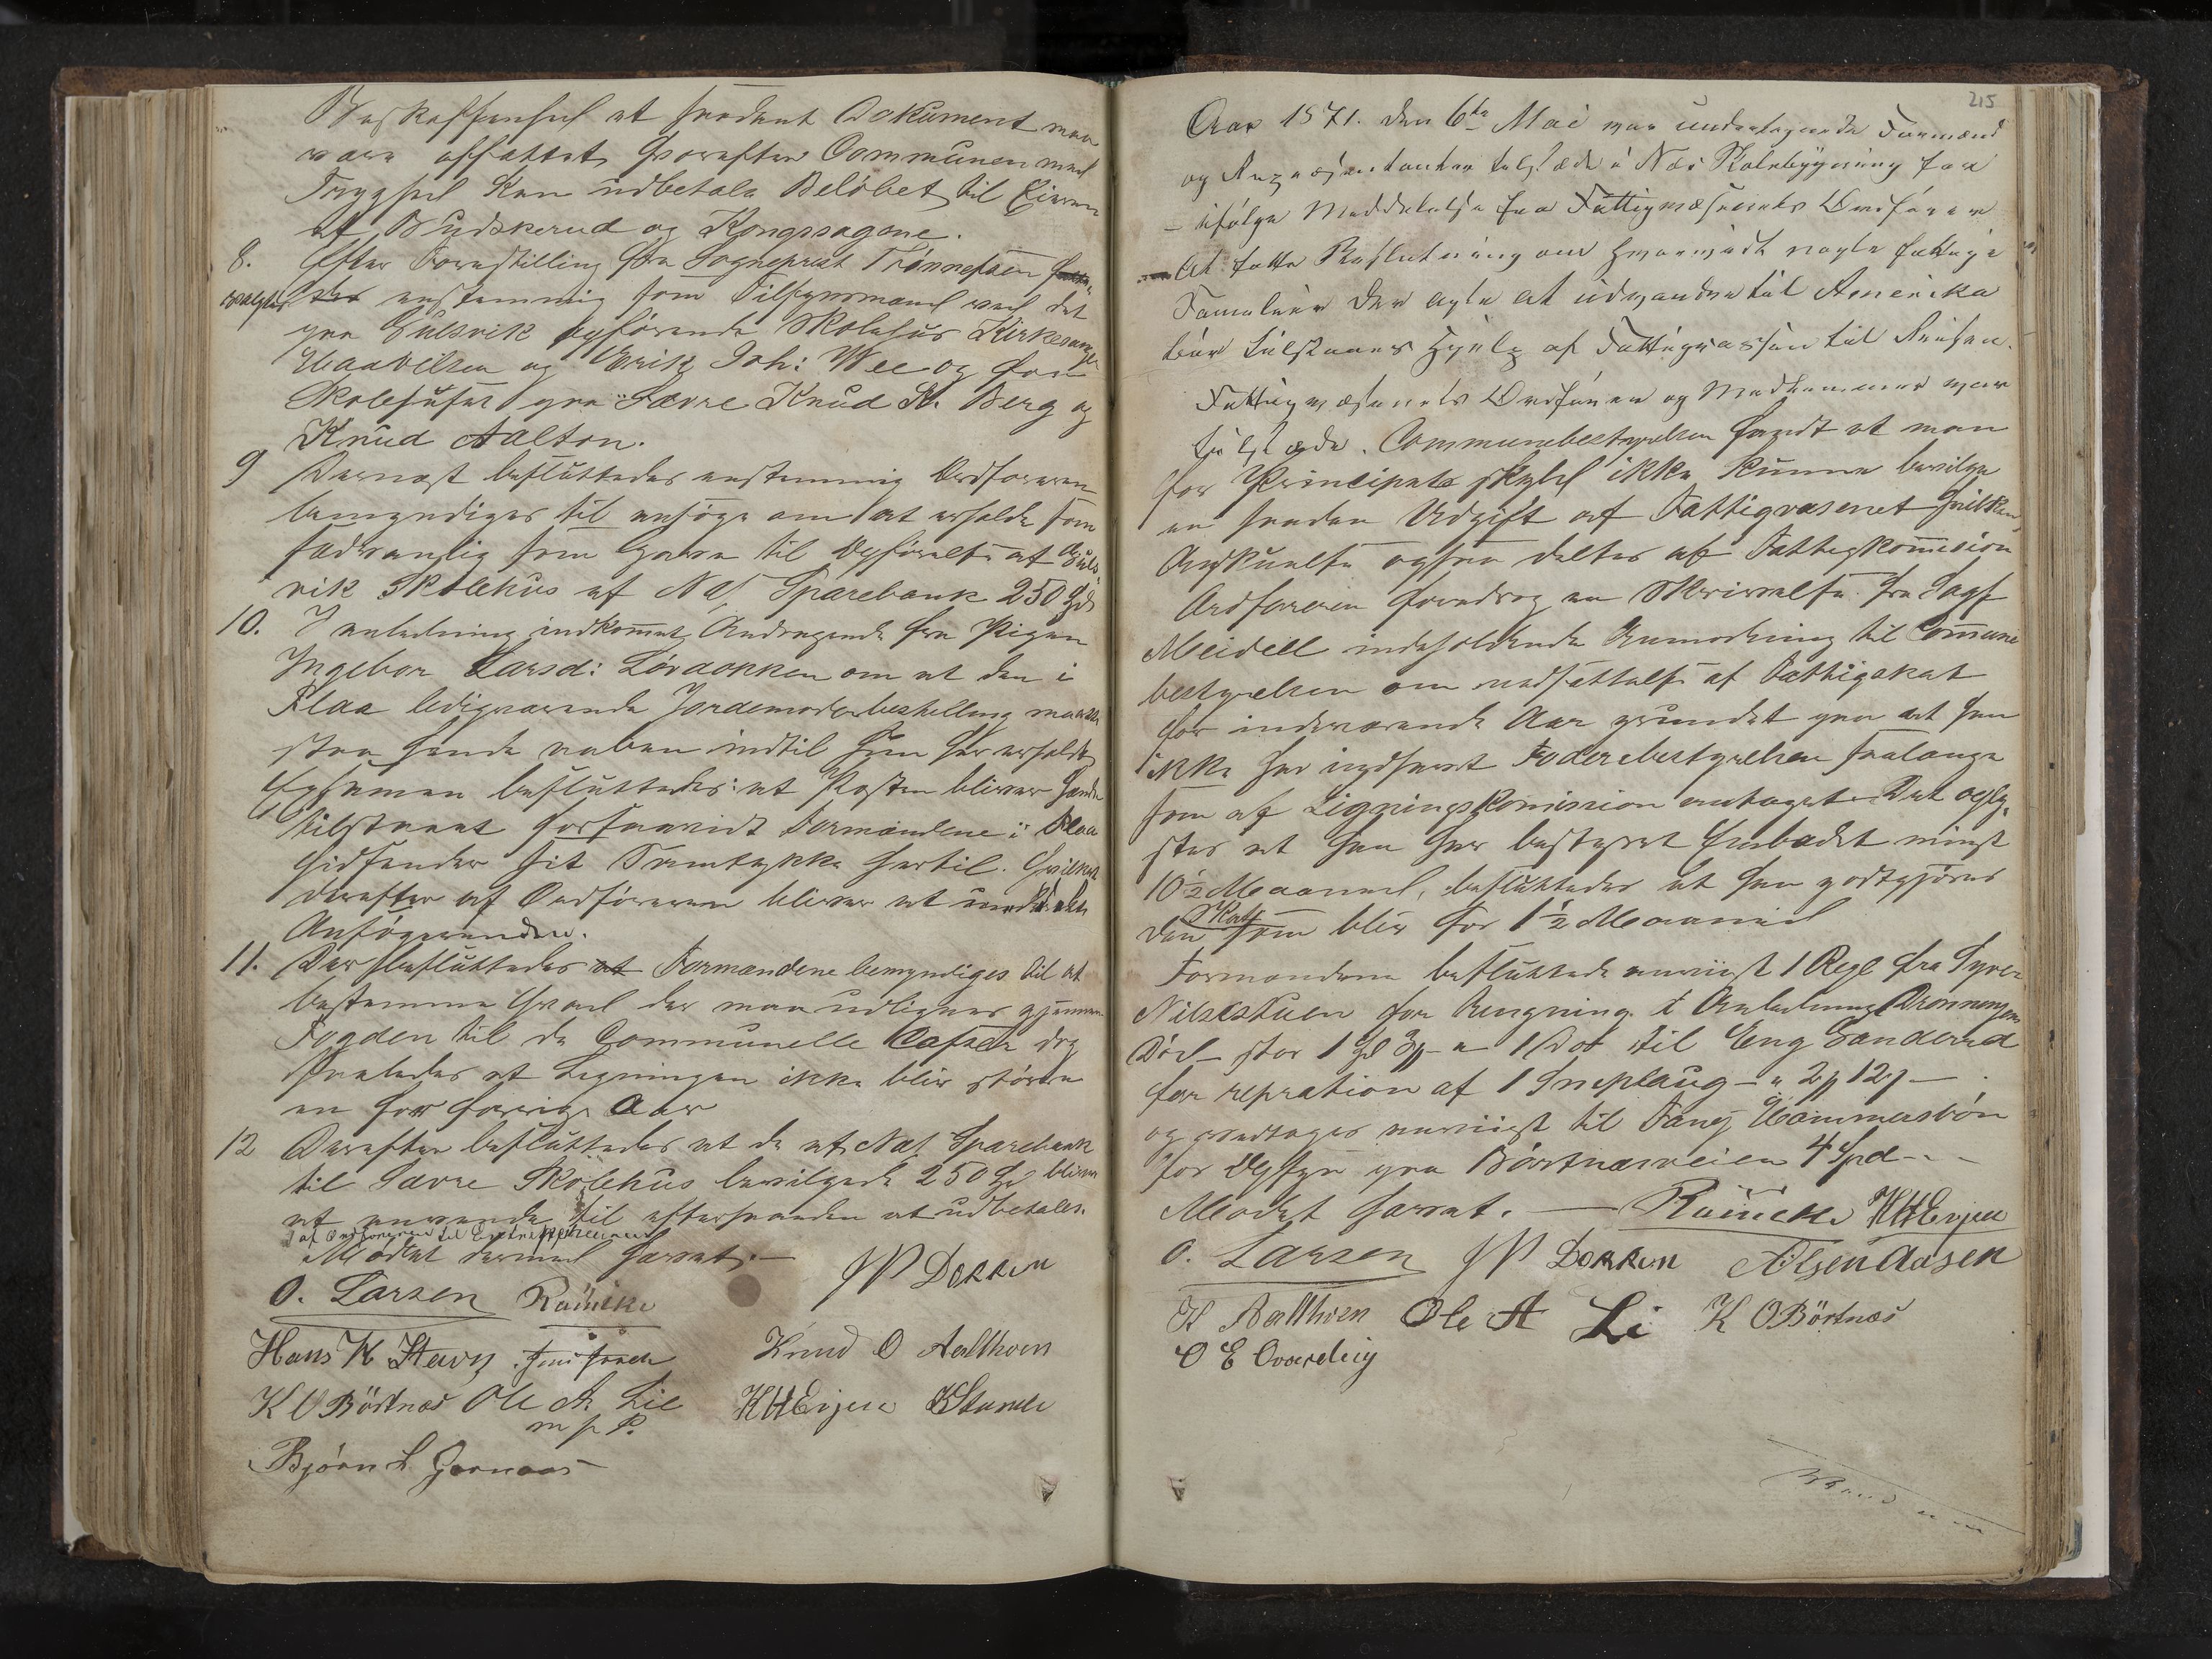 Beskaffenhed at saadant Dokument maa
være affattet hvorefter Communen med
Tryghed kan udbetale Beløbet til Eieren
af Budskerud og Kongssagene.
8. Efter Forestilling fra Sogneprest Tønnesen
valgtes enstemmig som Tilsynsmænd ved det
paa Gulsvik opførende Skolehus Kirkesanger
og Erik Joh: Wee og for
Skolehuset paa Sævre Knud K. Berg og
Knud Aalton.
9 Dernæst besluttedes enstemmig Ordføreren
bemyndiges til ansøge om at erholde som
sædvanlig som Gave til Opførelse af Guls-
vik Skolehus af Næs Sparebank 250 Spd
10. I anledning indkommet Andragende fra Pigen
Ingebor Larsd: Løvaokken om at den i
Flaa ledigværende Jordemoderbestilling maatte
staa hende aaben indtil hun har erholdt
Examen besluttedes: at Posten bliver hende
tilstaaet forsaavidt Formændene i Flaa
hidsender sit Samtykke hertil. Hvilket
derefter af Ordføreren bliver at meddele
Ansøgerinden.
11. Der besluttedes at Formændene bemyndiges til at
bestemme hvad der maa udlignes gjennem
Fogden til de Communelle Casser dog
saaledes at Ligningen ikke blir større
en for forrige Aar
12 Derefter besluttedes at de af Næs Sparebank
til Sævre Skolehus bevilgede 250 Spd bliver
at anvende til eftersaanden at udbetales.
af Ordføreren til Entreprenøren
Mødet dermed hævet. —
JP Dokken
O. Larsen Reinicke
Hans K Stavn Knud O Aalthoen
K O Börtnæs Ole A. Lie KHErgen
m p P.
Bjørn L Gornaas
215
Aar 1871. den 6te Mai var undertegnede Formænd
og Repræsentanter tilstæde i Næs Skolebygning for
ifølge Meddelelse fra Fattigvæsenets Ordfører
at fatte Beslutning om hvorvidt nogle fattige
Familier der agte at udvandre til Amerika
bør tilstaaes Hjelp af Fattigvassen til Reisen.
Fattigvæsenets Ordfører og Medlemmer var
tilstæde. Communebestyrelsen fandt at man
for Principets skyld ikke kunne bevilge
en saadan Udgift af Fattigvæsenet hvilken
Anskuelse ogsaa deltes af Fattigkommision
Ordføreren foredrog en Skrivelse fra Sagf
Meidell indeholdende Anmodning til Commune
bestyrelsen om nedsættelse af Fattigskat
for indeværende Aar grundet paa at han
ikke har indehavt Foderebestyrelsen saalænge
som af Ligningskommission antaget. Det oply-
stes at han har bestyret Embedet minst
10½ Maaned, besluttedes at han godtgjøres
den Skat som blir for 1½ Maaned
Formændene besluttede anviist 1 Regl fra Syver
Nilsestuen for Ringning i Anledning Dronningens
Død stor 1 Spd 3 — 1 Do til Eng Sanderud
for repration af 1 Sneplaug — 2 12 —
og vedtoges anviist til Fang Hammersbøn
for Opsyn paa Börtnæsveien 4 Spd - -
Mødet hævet. — Reinicke KHErgen
O. Larsen JP Dokken
K Aalthoen Ole A Li K O Börtnæs
O E